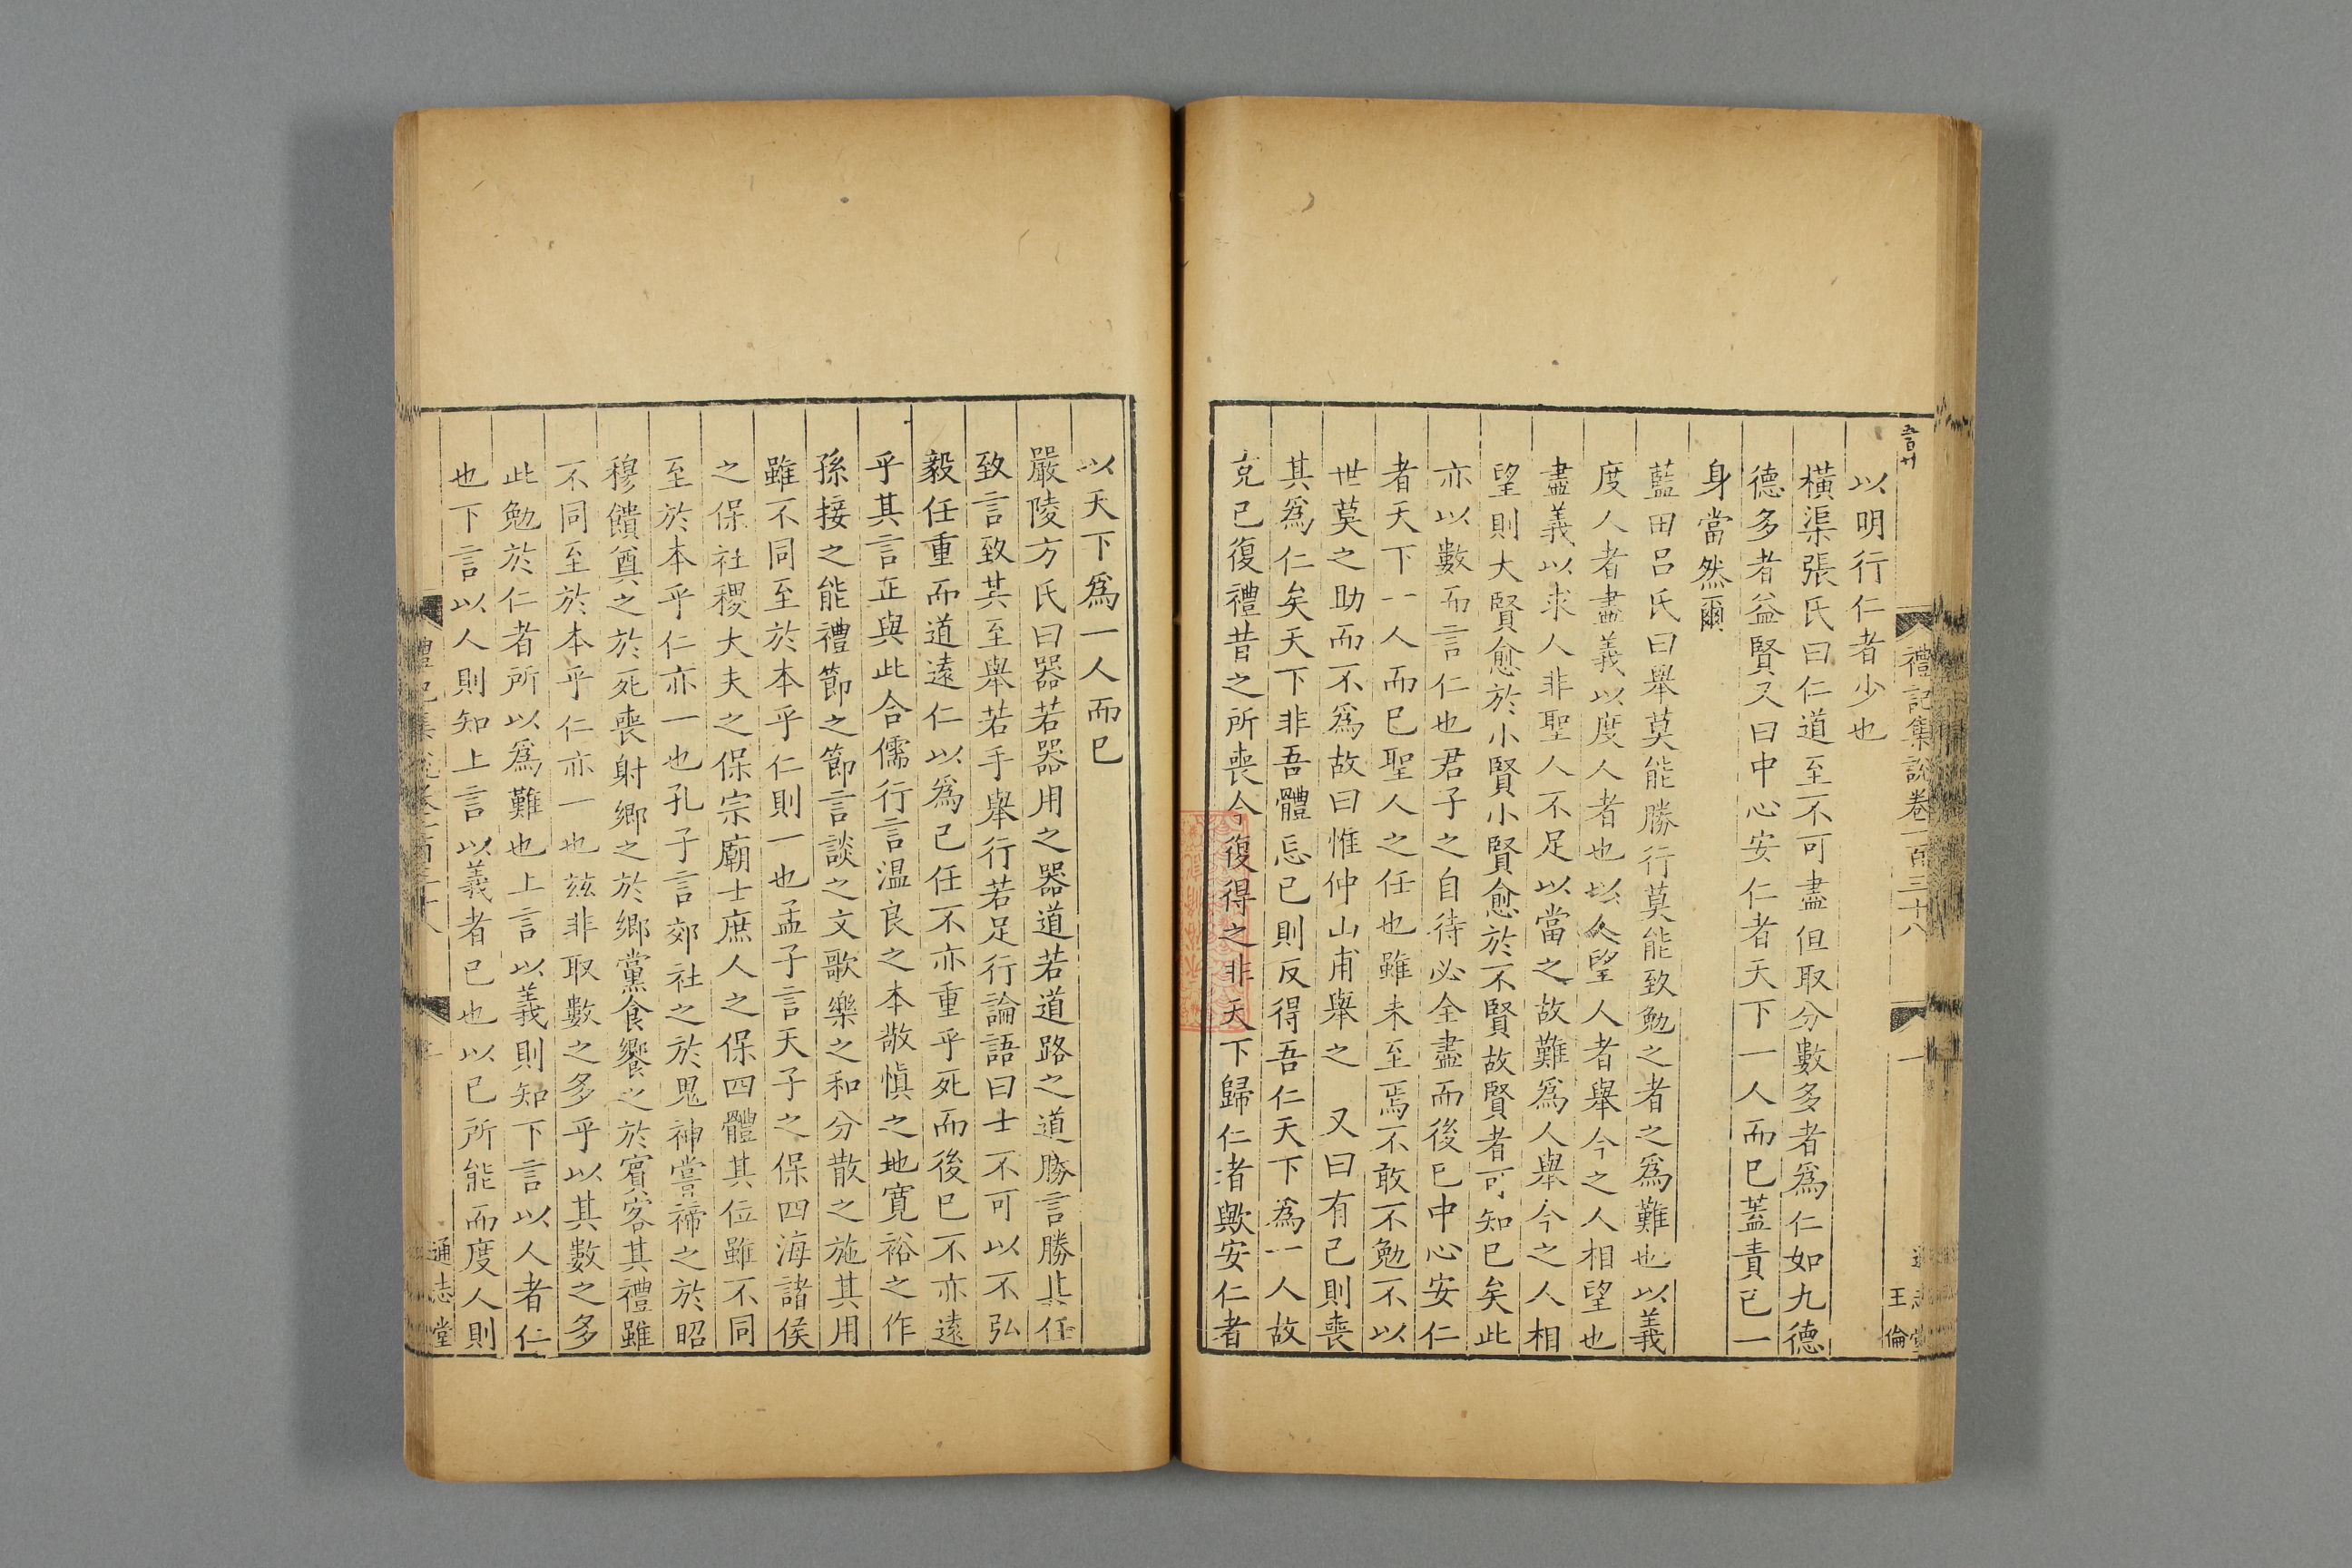 禮記集說卷一百三十八
一
王倫
以明行仁者少也
橫渠張氏曰仁道至不可盡但取分數多者爲仁如九德
德多者益賢又曰中心安仁者天下一人而已蓋責已一
身當然爾
藍田呂氏曰舉莫能勝行莫能致勉之者之爲難也以義
度人者盡義以度人者也以人望人者舉今之人相望也
盡義以求人非聖人不足以當之故難爲人舉今之人相
望則大賢愈於小賢小賢愈於不賢故賢者可知已矣此
亦以數而言仁也君子之自待必全盡而後已中心安仁
者天下一人而已聖人之任也雖未至焉不敢不勉不以
世莫之助而不爲故曰惟仲山甫舉之　又曰有己則喪
其爲仁矣天下非吾體忘己則反得吾仁天下爲一人故
克己復禮昔之所喪今復得之非天下歸仁者歟安仁者
以天下爲一人而已
嚴陵方氏曰器若器用之器道若道路之道勝言勝其任
致言致其至舉若手舉行若足行論語曰士不可以不弘
毅任重而道遠仁以爲己任不亦重乎死而後已不亦遠
乎其言正與此合儒行言温良之本敬慎之地寬裕之作
孫接之能禮節之節言談之文歌樂之和分散之施其用
雖不同至於本乎仁則一也孟子言天子之保四海諸侯
之保社稷大夫之保宗廟士庶人之保四體其位雖不同
至於本乎仁亦一也孔子言郊社之於鬼神嘗禘之於昭
穆饋奠之於死喪射鄉之於鄉黨食饗之於賓客其禮雖
不同至於本乎仁亦一也玆非取數之多乎以其數之多
此勉於仁者所以爲難也上言以義則知下言以人者仁
也下言以人則知上言以義者已也以已所能而度人則
通志堂